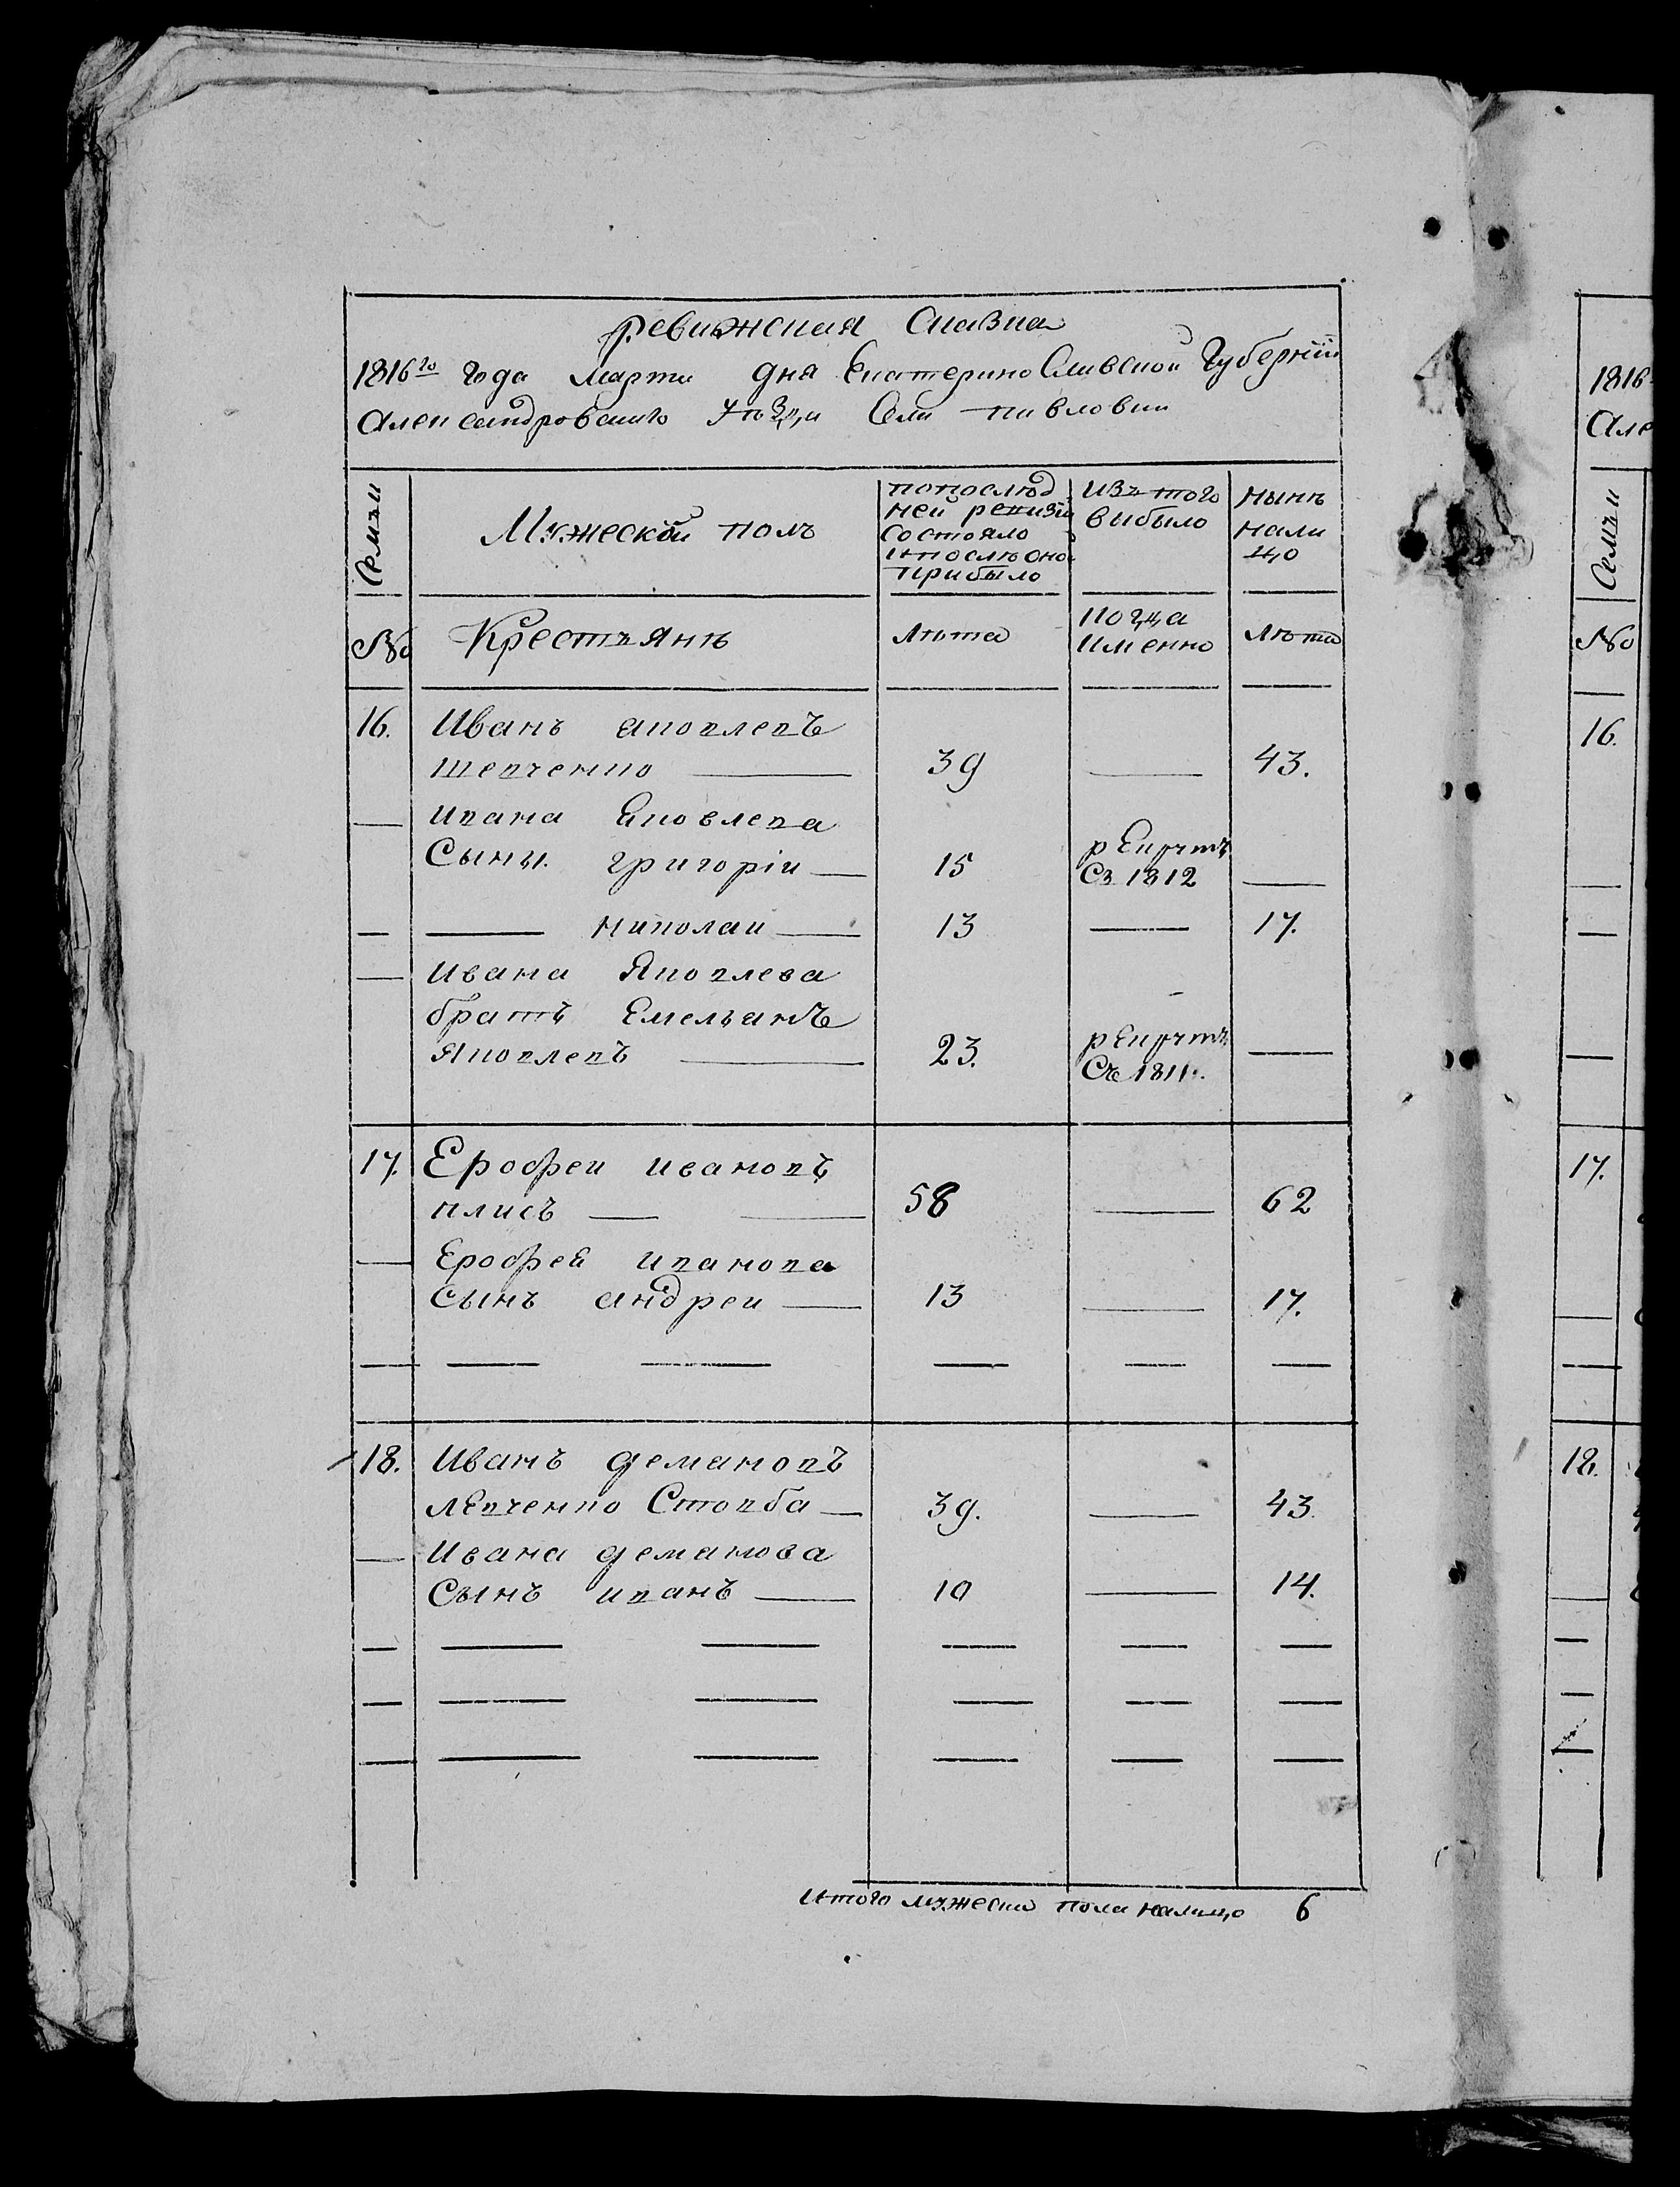 ревижская сказка
1816го года марта дня Екатеринославской Губернiи
Александровского уезда Села павловки
Семьи
Мужеской полъ
попослед
ней ревизiи
состояло
и после оной
прибыло
изъ того
выбыло
нынѣ
нали
цо
№
Крестьянъ
лѣта
когда
именно
лѣта
16. Иванъ яковлевъ
шевченко — 39 — 43.
— ивана Яковлева
Сыны. григорiи — 15 рекрутъ
съ 1812 —
— — николаи — 13 — 17.
— ивана Яковлева
братъ Емельянъ
Яковлевъ — 23. рекрутъ
съ 1811. —
17. Ерофеи ивановъ
плисъ — — 58 — 62
— Ерофея иванова
сынъ андреи — 13 — 17.
— — — — — —
18. Иванъ демановъ
левченко Стовба — 39. — 43.
— Ивана деманова
Сынъ иванъ — 10 — 14.
— — — — — —
— — — — — —
— — — — — —
итого мужеска пола налицо 6
1816
Але
Семьи
№
16.
17.
18.